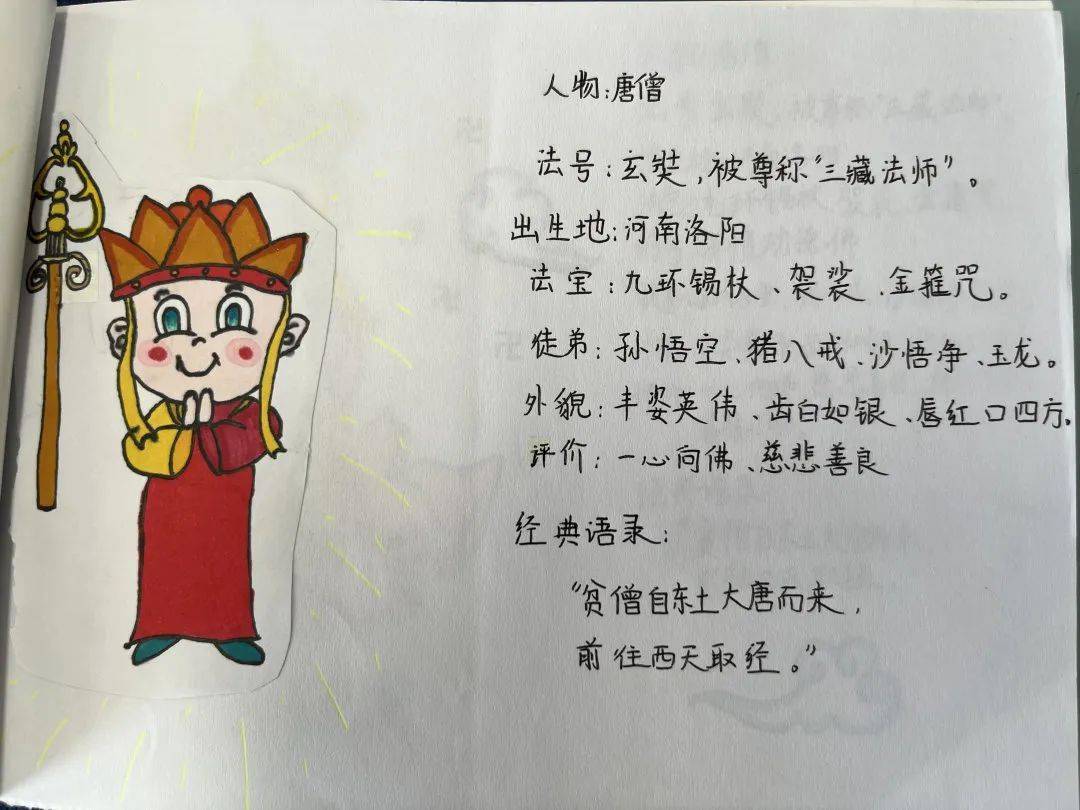 人物:唐僧
法号:玄奘,被尊称“三藏法师”。
出生地:河南洛阳
法宝:九环锡杖、袈裟、金箍咒。
徒弟:孙悟空、猪八戒、沙悟净、玉龙。
外貌:丰姿英伟、齿白如银、唇红口四方。
评价:一心向佛、慈悲善良
经典语录:
“贫僧自东土大唐而来,
前往西天取经。”